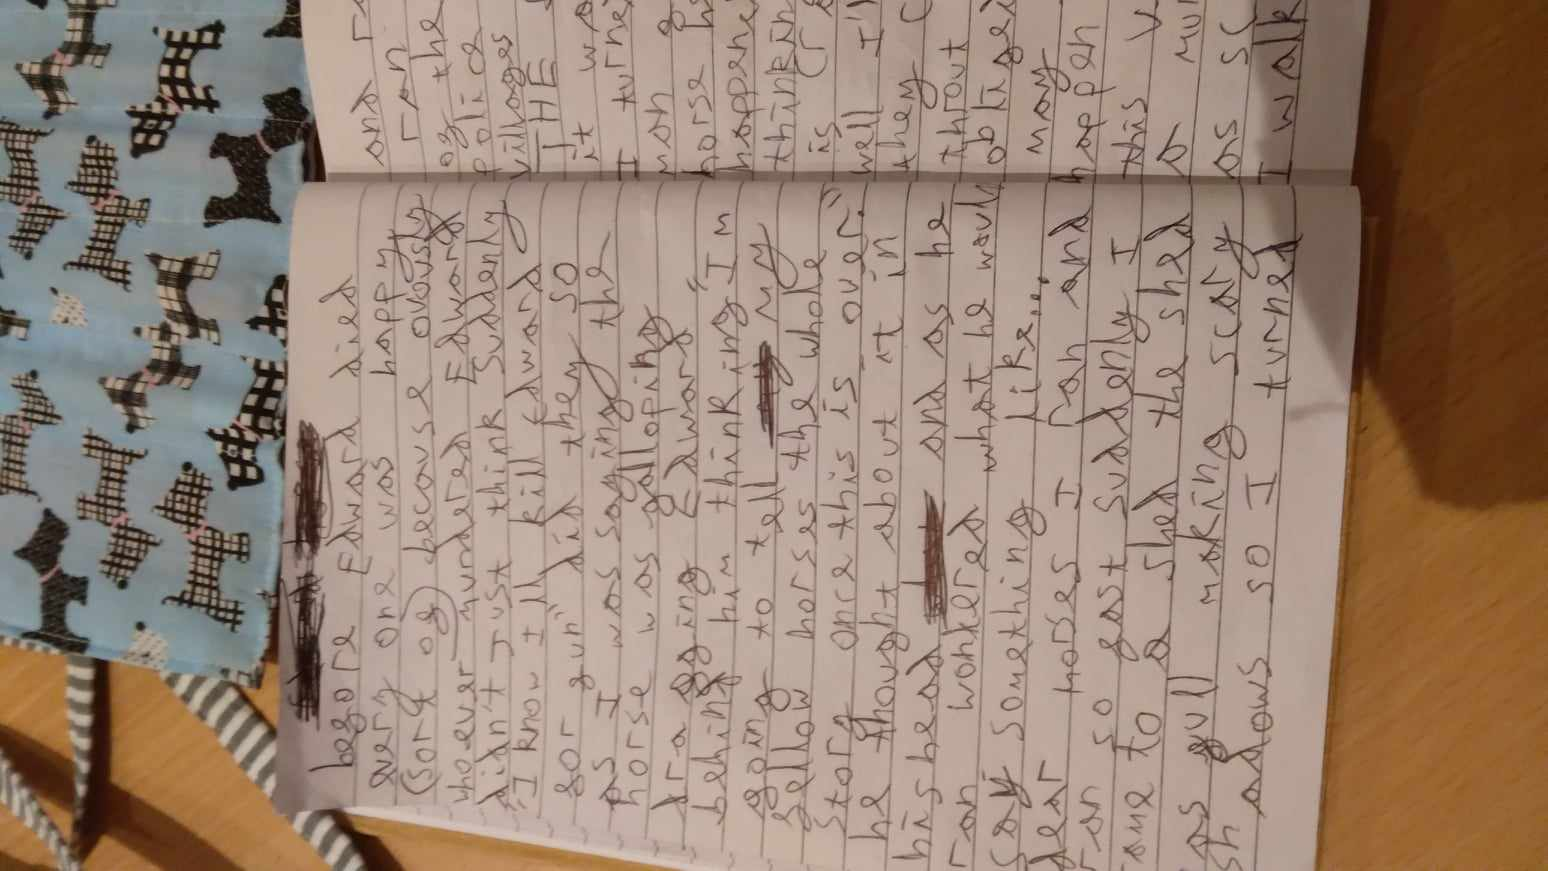 before Edward died
every one was happy
(sort of) because ovousty
whoever murdered Edward
didn't just think suddenly
"I know I'll kill Edward
for fun" did they so
as I was saying the
horse was galloping
dra ging Edward
behind him thinking "Im
going to tell my
fellow horses the whole
story once this is over"
he thought about it in
his head and as he
ran wonkered what he would
say something like...
dear horses I ran and
ran so fast suddenly I
came to a shed the shed
was full making scary
shadows so I turned
and
ran
of the
Police
villages
THE
it
I turne
man
horse
happene
thinkin
is
well I'll
they
throut
may
happen
this
a
as
I walk